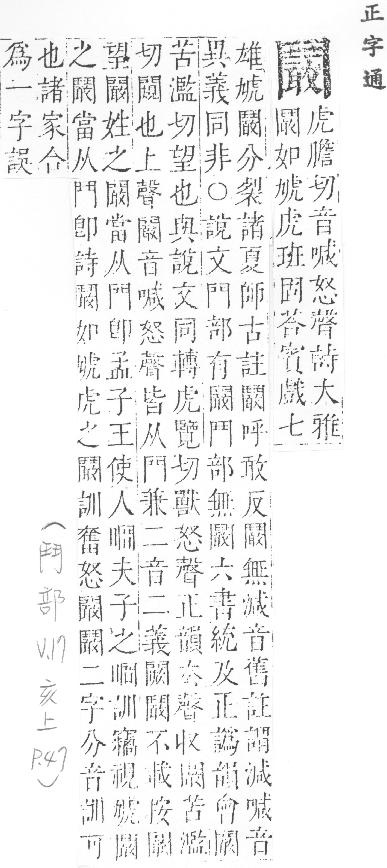 正字通
鬫
虎膽切音喊怒聲詩大雅
闞如虓虎班固荅賓戲七
雄虓闞分裂諸夏師古註闞呼敢反闞無減音舊註謂減喊音
異義同非○說文門部有闞鬥部無鬫六書統及正譌韻會闞
苦濫切望也與說文同轉虎覽切獸怒聲正韻去聲收闞苦濫
切也上聲闞音喊怒聲皆从門兼二音二義鬫不載按闞
望闞姓之闞當从門卽孟子王使人瞯夫子之瞯訓竊視虓鬫
之鬫當从鬥卽詩鬫如虓虎之鬫訓奮怒闞鬫二字分音訓可
也諸家合
爲一字誤
(鬥部 V.17 亥上 P.47)